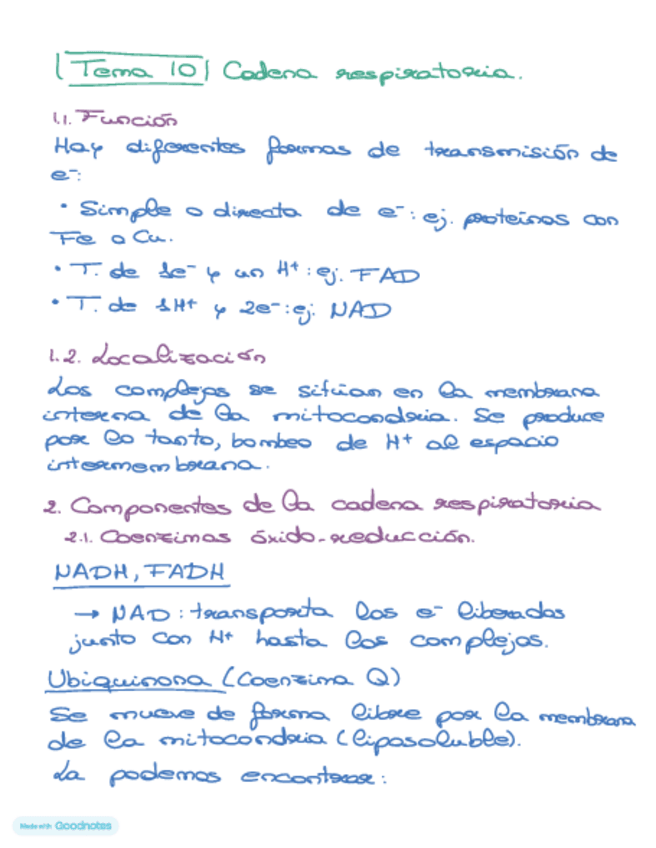 Tema 10 Cadena respiratoria.
1.1. Función
Hay diferentes formas de transmisión de
e⁻:
• Simple o directa de e⁻: ej. proteínas con
Fe o Cu.
• T. de 1e⁻ y un H⁺: ej. FAD
• T. de 1H⁺ y 2e⁻: ej. NAD
1.2. Localización
Los complejos se sitúan en la membrana
interna de la mitocondria. Se produce
por lo tanto, bombeo de H⁺ al espacio
intermembrana.
2. Componentes de la cadena respiratoria
2.1. Coenzimas óxido-reducción.
NADH, FADH
→ NAD: transporta los e⁻ liberados
junto con H⁺ hasta los complejos.
Ubiquinona (Coenzima Q)
Se mueve de forma libre por la membrana
de la mitocondria (liposoluble).
La podemos encontrar:
Made with Goodnotes